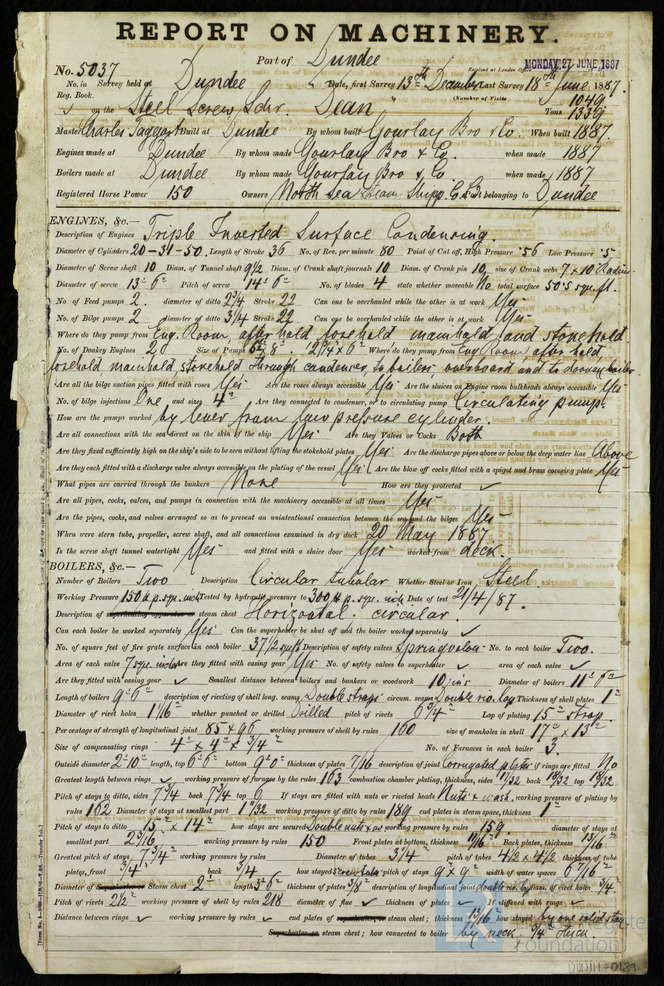 REPORT ON MACHINERY.
Port of Dundee
Received at London Office MONDAY 27 JUNE, 1887
No. 5037
No. in Survey held at Dundee Date, first Survey 13th December Last Survey 18th June 1887.
Reg. Book. (Number of Visits
on the Steel Screw Schr. Dean Tons 1049 1339
Master Charles Taggart Built at Dundee By whom built Gourlay Bro & Co. When built 1887
Engines made at Dundee By whom made Gourlay Bro & Co. when made 1887
Boilers made at Dundee By whom made Gourlay Bro & Co. when made 1887
Registered Horse Power 150 Owners North Sea Steam Shipp. Co. Ld. belonging to Dundee
ENGINES, &c.—
Description of Engines Triple Inverted Surface Condensing.
Diameter of Cylinders 20-31-50. Length of Stroke 36 No. of Rev. per minute 80 Point of Cut off, High Pressure .56 Low Pressure .5
Diameter of Screw shaft 10 Diam. of Tunnel shaft 9 1/2 Diam. of Crank shaft journals 10 Diam. of Crank pin 10 size of Crank webs 7 x 10
Diameter of screw 13" 6" Pitch of screw 14" 6" No. of blades 4 state whether moveable No total surface 50.5 sq. ft.
No. of Feed pumps 2 diameter of ditto 2 3/4 Stroke 22 Can one be overhauled while the other is at work Yes
No. of Bilge pumps 2 diameter of ditto 3 1/4 Stroke 22 Can one be overhauled while the other is at work Yes
Where do they pump from Eng. Room, after hold, fore hold, main hold, and stokehold
No. of Donkey Engines 2 Size of Pumps Where do they pump from Eng Room after hold
forehold mainhold, stokehold through condenser, to boilers overboard and to donkey boiler
Are all the bilge suction pipes fitted with roses Yes Are the roses always accessible Yes Are the sluices on Engine room bulkheads always accessible Yes
No. of bilge injections One and sizes 4" Are they connected to condenser, or to circulating pump Circulating pump.
How are the pumps worked by lever from low pressure cylinder.
Are all connections with the sea direct on the skin of the ship Yes Are they Valves or Cocks Both
Are they fixed sufficiently high on the ship's side to be seen without lifting the stokehold plates Yes Are the discharge pipes above or below the deep water line Above
Are they each fitted with a discharge valve always accessible on the plating of the vessel Yes Are the blow off cocks fitted with a spigot and brass covering plate Yes
What pipes are carried through the bunkers None How are they protected ✓
Are all pipes, cocks, valves, and pumps in connection with the machinery accessible at all times Yes
Are the pipes, cocks, and valves arranged so as to prevent an unintentional connection between the sea and the bilges Yes
When were stern tube, propeller, screw shaft, and all connections examined in dry dock 20 May 1887
Is the screw shaft tunnel watertight Yes and fitted with a sluice door Yes worked from deck.
BOILERS, &c.—
Number of Boilers Two Description Circular tubular Whether Steel or Iron Steel
Working Pressure 150 lb p. sqr. inch Tested by hydraulic pressure to 300 lb p. sqr. inch Date of test 21/4/87.
Description of superheating apparatus or steam chest Horizontal circular.
Can each boiler be worked separately Yes Can the superheater be shut off and the boiler worked separately ✓
No. of square feet of fire grate surface in each boiler 37 1/2 sq ft Description of safety valves Spring valve No. to each boiler Two.
Area of each valve 7 sqr. inch Are they fitted with easing gear Yes No. of safety valves to superheater ✓ area of each valve ✓
Are they fitted with easing gear ✓ Smallest distance between boilers and bunkers or woodwork 10 ins Diameter of boilers 11"
Length of boilers 9" 6" description of riveting of shell long. seams Double straps circum. seams Double riv. lap Thickness of shell plates 1"
Diameter of rivet holes 1 1/16" whether punched or drilled Drilled pitch of rivets 6 3/4" Lap of plating 15" strap.
Per centage of strength of longitudinal joint 85 & 96 working pressure of shell by rules 160 size of manholes in shell 17" x 13"
Size of compensating rings 4" x 4" x 3/4" No. of Furnaces in each boiler 3.
Outside diameter 2" 10" length, top 6" 6" bottom 9" 0" thickness of plates 7/16 description of joint Corrugated plates if rings are fitted No
Greatest length between rings ✓ working pressure of furnace by the rules 163 combustion chamber plating, thickness, sides 17/32 back 18/32 top 18/32
Pitch of stays to ditto, sides 7 3/4 back 7 3/4 top 6 If stays are fitted with nuts or riveted heads Nuts & wash. working pressure of plating by
rules 162 Diameter of stays at smallest part 1 9/32 working pressure of ditto by rules 189 end plates in steam space, thickness 1"
Pitch of stays to ditto 15" x 14" how stays are secured Double nuts working pressure by rules 159. diameter of stays at
smallest part 2 5/16" working pressure by rules 150 Front plates at bottom, thickness Back plates, thickness 13/16"
Greatest pitch of stays 7 3/4" working pressure by rules Diameter of tubes 3 1/4 pitch of tubes 4 1/2 x 4 1/2 thickness of tube
plates, front 3/4 back 3/4 how stayed pitch of stays 9" x 9" width of water spaces 6 7/16"
Diameter of Superheater or Steam chest 2" length 5" 6" thickness of plates 3/8" description of longitudinal joint double riv. lap diam. of rivet holes 3/4"
Pitch of rivets 2 1/2" working pressure of shell by rules 218 diameter of flue ✓ thickness of plates ✓ If stiffened with rings ✓
Distance between rings ✓ working pressure by rules ✓ end plates of superheater, or steam chest; thickness 13/16" how stayed by one solid stay
Superheater or steam chest; how connected to boiler by neck 3/4" thick.
Foundation